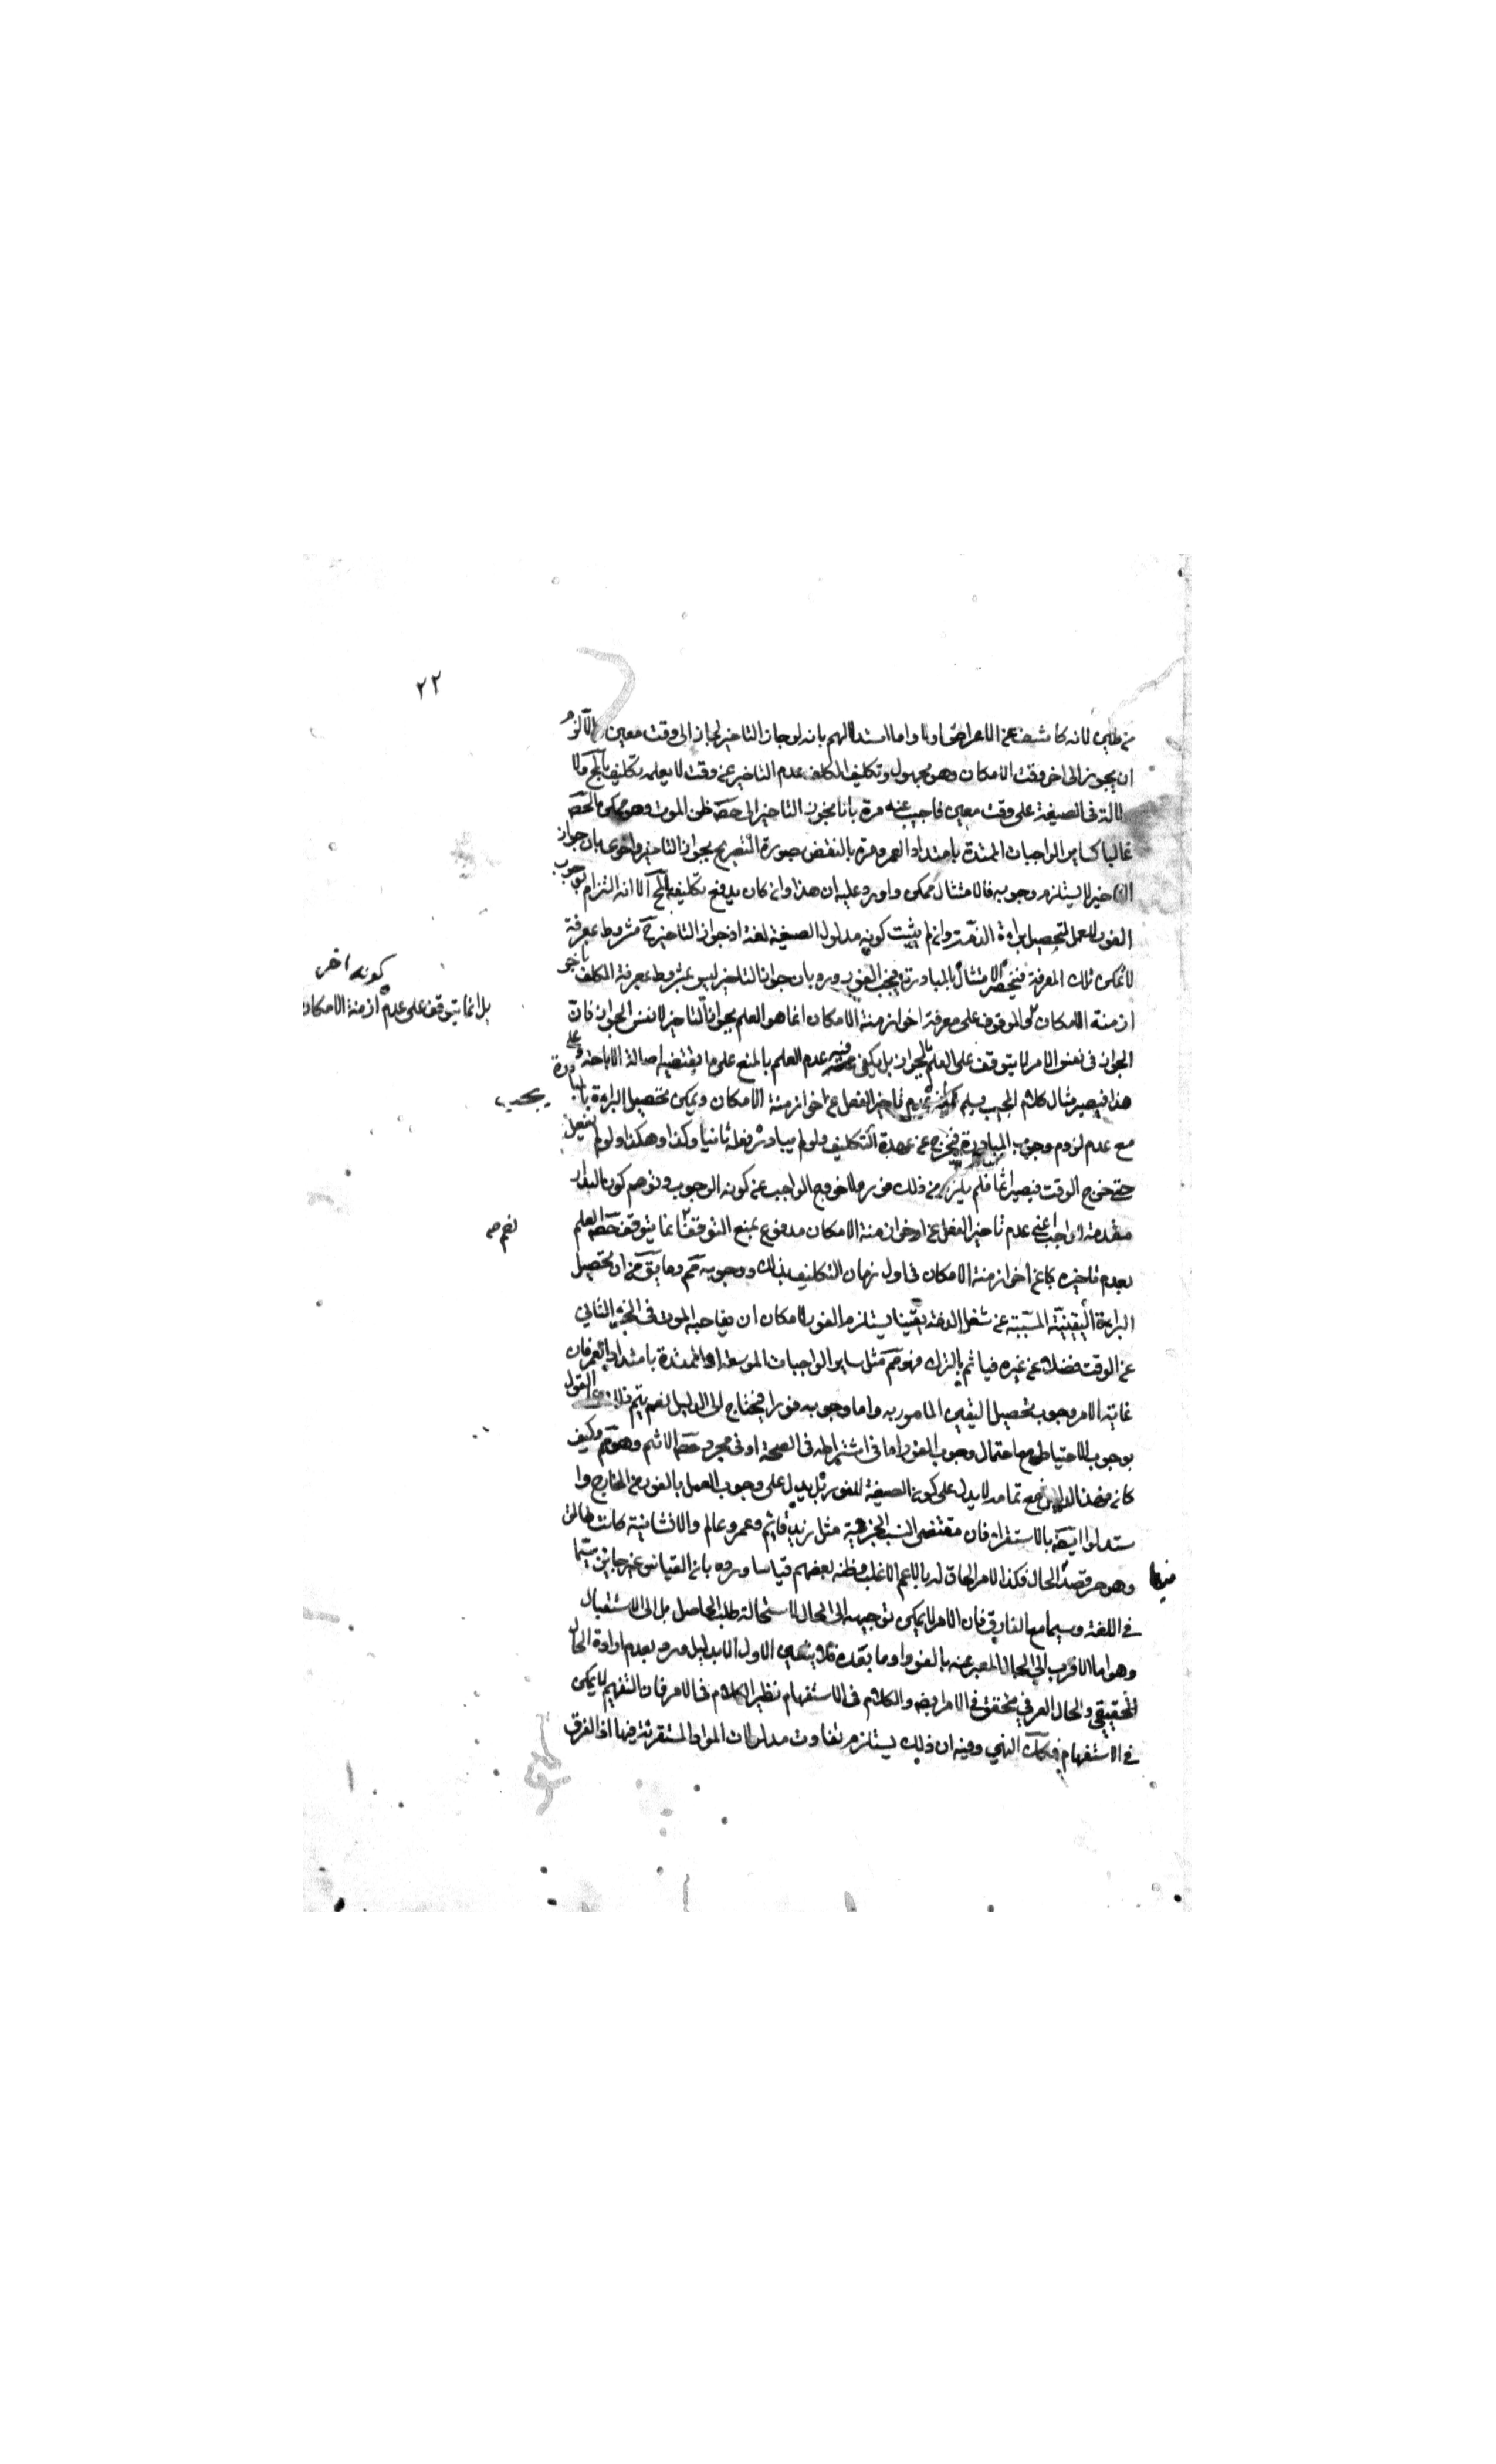 ٢٢
لانه كاشف عن الاعراض اولا واما استدلالهم بانه لو جاز التاخير لجاز الى وقت معين
ان يجوز الى اخر وقت الامكان وهو مجهول وتكليف المكلف عدم التاخير عن وقت لا يعلمه تكليف بالمح ولا
دلالة فى الصيغة على وقت معين فاجيب عنه مرة بانا نجوز التاخير الى حصة ظن الموت وهو ممكن الحصة
غالبا كساير الواجبات الممتدة بامتداد العمر ومرة بالنقض بصورة التصريح بجواز التاخير واخرى بان جواز
التاخير لا يستلزم وجوبه فالامتثال ممكن واورد عليه ان هذا وان كان يدفع تكليف المح الا انه التزام بوجوب
الفور للعمل لتحصيل براءة الذمة وان لم يثبت كونه مدلول الصيغة لغة اذ جواز التاخير ح مشروط بمعرفة
لا تمكن تلك المعرفة فينحصر الامتثال بالمبادرة فيجب الفور ورد بان جواز التاخير ليس بمشروط بمعرفة المكلف
كونه اخر
بل انما يتوقف على عدم ازمنة الامكان
ازمنة الامكان والموقوف على معرفة اخر ازمنة الامكان انما هو العلم بجواز التاخير لا نفس الجواز فان
الجواز فى نفس الامر لا يتوقف على العلم بالجواز بل يكفى فيه عدم العلم بالمنع على ما يقتضيه اصالة الاباحة وعلى
هذا فيصير مثال كلام المجيب تاخير الفعل عن اخر ازمنة الامكان ويمكن تحصيل البراءة بالمبادرة
مع عدم لزوم وجوب المبادرة فيخرج عن عهدة التكليف ولو لم يبادر فعله ثانيا وكذا وهكذا ولو لم يفعل
حتى خرج الوقت فيصير اثما فلم يلزم من ذلك فور ولا خروج الواجب عن كونه الوجوب وتوهم كون البدار
مقدمة الواجب اعنى عدم تاخير الفعل عن اخر ازمنة الامكان مدفوع بمنع التوقف انما يتوقف حصة العلم
نعم
بعدم تاخيره عن اخر ازمنة الامكان فى اول زمان التكليف بذلك ووجوبه مم وما يق من ان تحصيل
البراءة اليقينية المسببة عن شغل الذمة يقينا يستلزم الفور لامكان ان يفاجيه الموت فى الجزء الثانى
عن الوقت فضلا عن غيره فياثم بالترك فهو مم مثل ساير الواجبات الموسعة او الممتدة بامتداد العمر فان
غاية الامر وجوب تحصيل اليقين المامور به واما وجوبه فورا فيحتاج الى الدليل نعم يتم القول
بوجوب الاحتياط مع احتمال وجوب الفور اما فى اشتراطه فى الصحة او فى مجرد حصة الاثم وهو مم وكيف
كان فهذا الدليل مع تمامه لا يدل على كون الصيغة للفور بل يدل على وجوب العمل بالفور من الخارج وا
ستدلوا ايضه بالاستقراء فان مقتضى النسب الخبرية مثل زيد قائم وعمرو عالم والانشائية كانت طالق
وهو حر قصد الحال فكذا الامر الحاق له بالاعم الاغلب وظنه بعضهم قياسا ورده بان القياس غير جايز سيما
فى اللغة وسيما مع الفارق فان الامر لا يمكن توجيهه الى الحال لاستحالة طلب الحاصل بل الى الاستقبال
وهو اما الاقرب الى الحال المعبر عنه بالفور او ما بعده فلا يتعين الاول الا بدليل ورد بعدم ارادة الحال
الحقيقى والحال العرفى متحقق فى الامر ايضه والكلام فى الاستفهام نظير الكلام فى الامر فان التفهيم لا يمكن
فى الاستفهام النهى وفيه ان ذلك يستلزم تفاوت مدلولات المواد المستقرئة فيها اذ الفرق